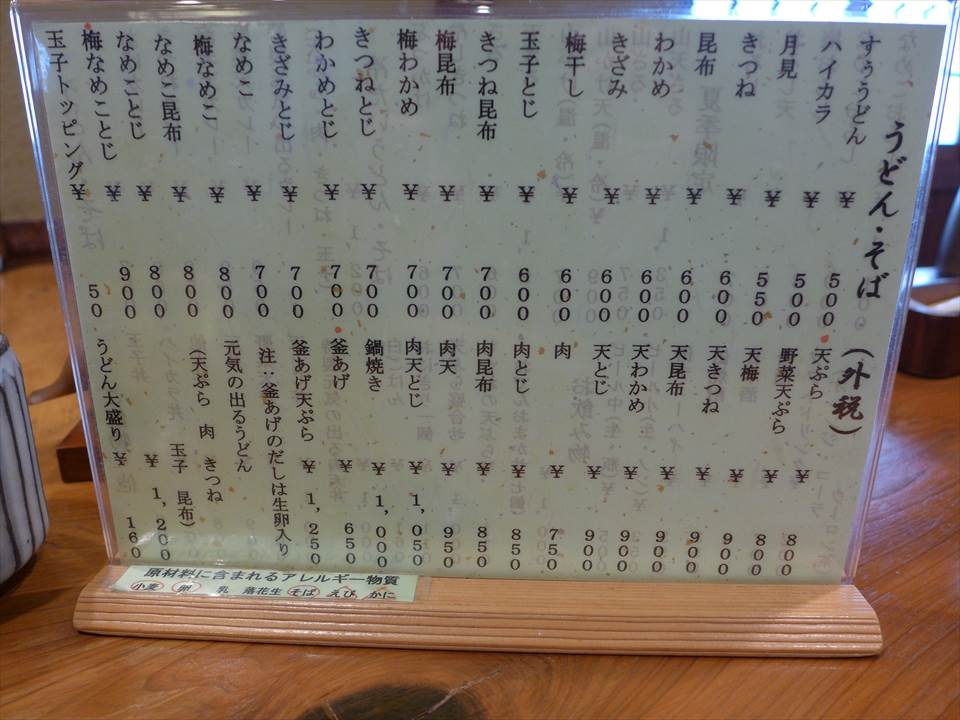 うどん・そば（外税）
すうどん ¥500
ハイカラ ¥500
月見 ¥550
きつね ¥600
昆布 ¥600
わかめ ¥600
きざみ ¥600
梅干し ¥600
玉子とじ ¥600
きつね昆布 ¥700
梅昆布 ¥700
梅わかめ ¥700
きつねとじ ¥700
わかめとじ ¥700
きざみとじ ¥700
なめこ ¥700
梅なめこ ¥800
なめこ昆布 ¥800
なめことじ ¥800
梅なめことじ ¥900
玉子トッピング ¥50
天ぷら ¥800
野菜天ぷら ¥800
天梅 ¥900
天きつね ¥900
天昆布 ¥900
天わかめ ¥900
天とじ ¥900
肉 ¥750
肉とじ ¥850
肉昆布 ¥850
肉天 ¥950
肉天とじ ¥1,050
鍋焼き ¥1,000
釜あげ ¥650
釜あげ天ぷら ¥1,250
注:釜あげのだしは生卵入り
元気の出るうどん
(天ぷら 肉 きつね
玉子 昆布) ¥1,200
うどん大盛り ¥160
原材料に含まれるアレルギー物質
小麦 卵 乳 落花生 そば えび かに